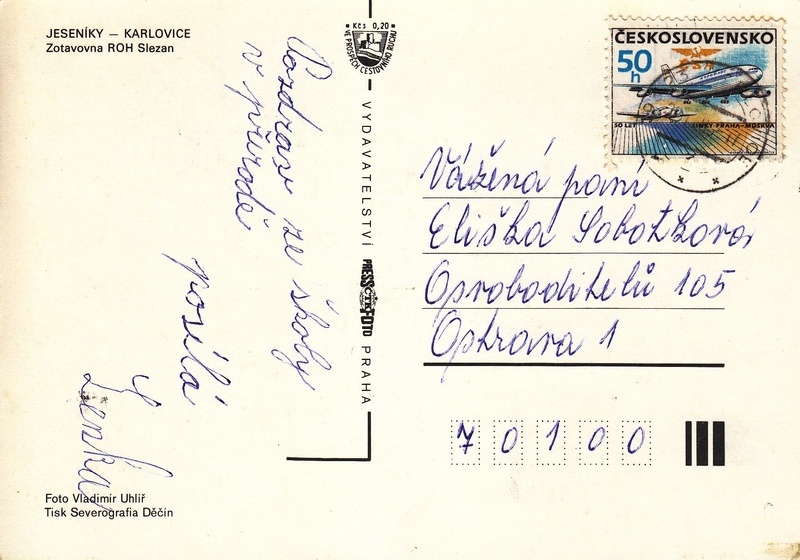 JESENÍKY — KARLOVICE
Zotavovna ROH Slezan
Pozdrav ze školy
v přírodě
posílá
Lenka
Foto Vladimír Uhlíř
Tisk Severografia Děčín
Kčs 0,20
VE PROSPĚCH CESTOVNÍHO RUCHU
VYDAVATELSTVÍ PRESSFOTO PRAHA
ČTK
ČESKOSLOVENSKO
50 h
ČSA
50 LET LINKY PRAHA-MOSKVA
Vážená paní
Eliška Sobotková
Osvoboditelů 105
Ostrava 1
7 0 1 0 0